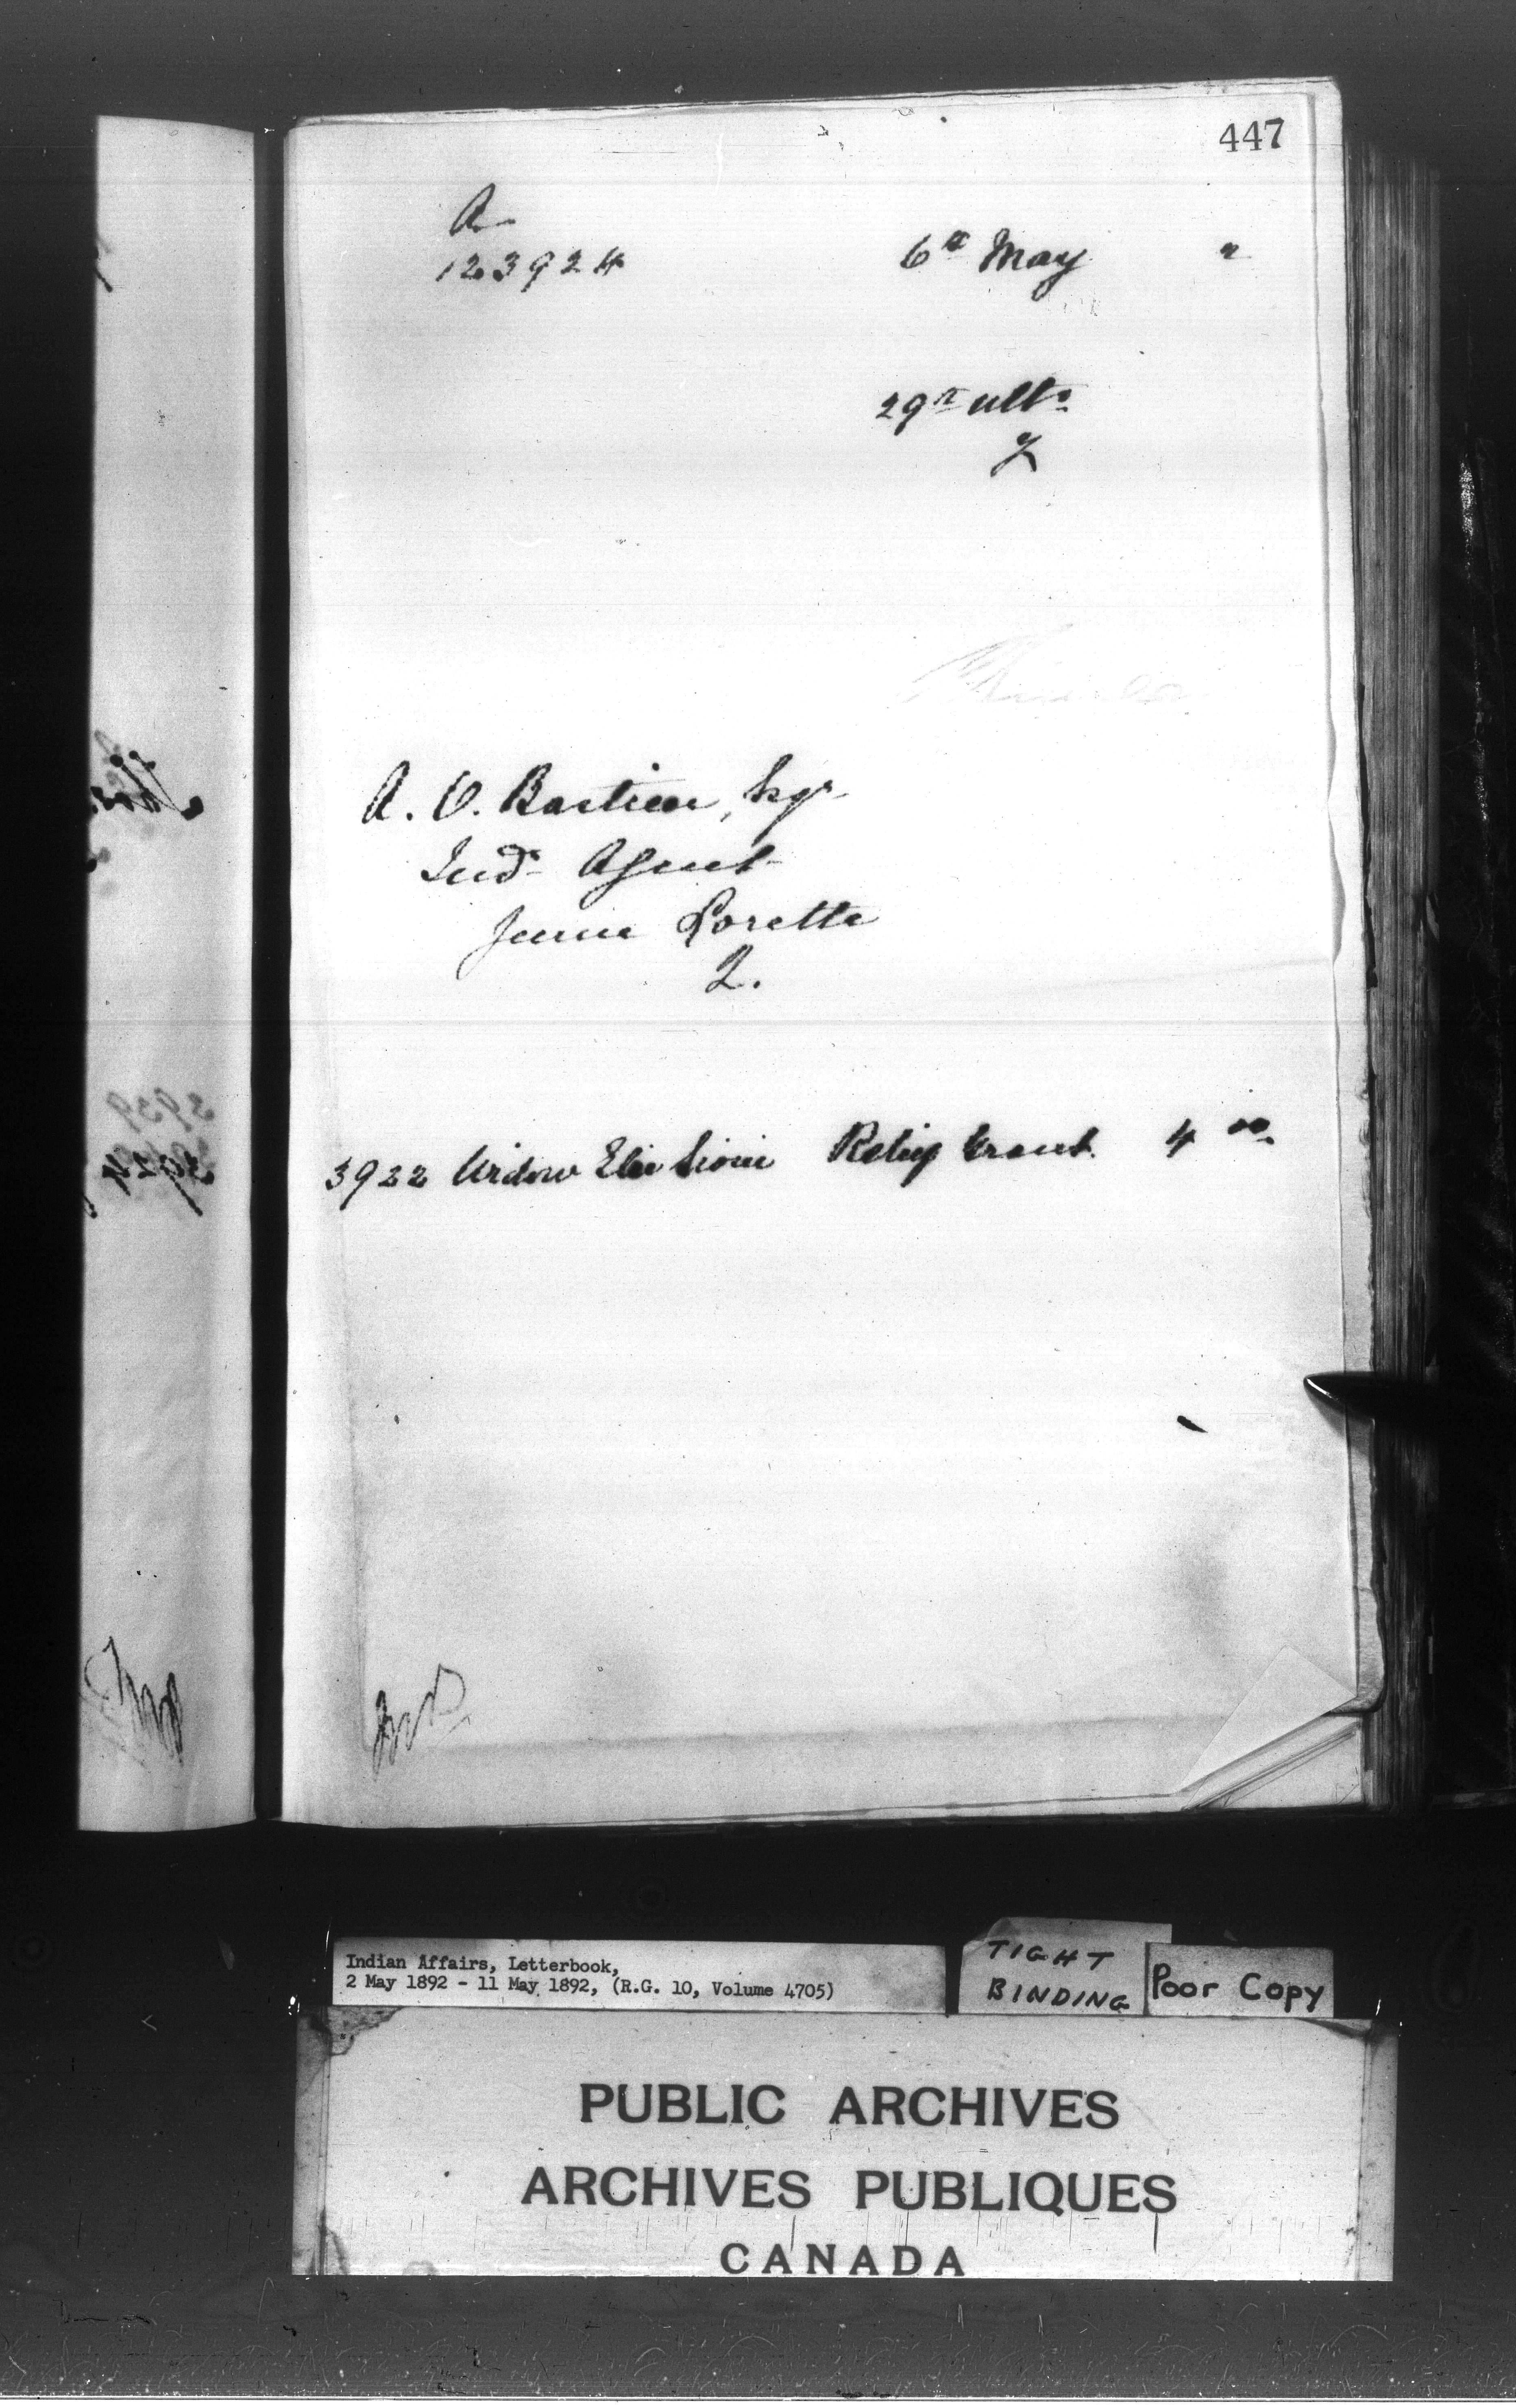 447
A
123924
6th May "
29th ulto
A. O. Bastien, Esqr
Ind. Agent
Jeune Lorette
Q.
3922 Widow Elie Sioui Relief Grant 4 00
Indian Affairs, Letterbook,
2 May 1892 - 11 May 1892, (R.G. 10, Volume 4705)
TIGHT
BINDING
Poor Copy
PUBLIC ARCHIVES
ARCHIVES PUBLIQUES
CANADA